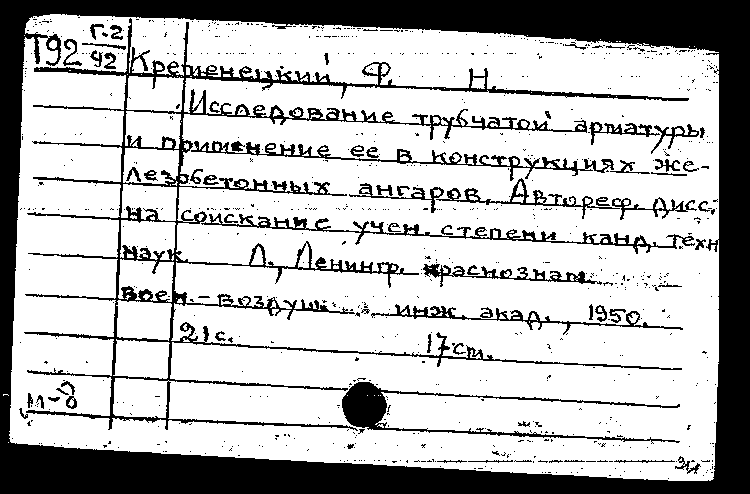 Т92 Г-2/42
Кременецкий, Ф. Н.
Исследование трубчатой арматуры
и применение ее в конструкциях же-
лезобетонных ангаров. Автореф. дисс.
на соискание учен. степени канд. техн
наук Л., Ленингр. краснознам.
воен.-воздуш. инж. акад., 1950.
21с. 17см.
м-д